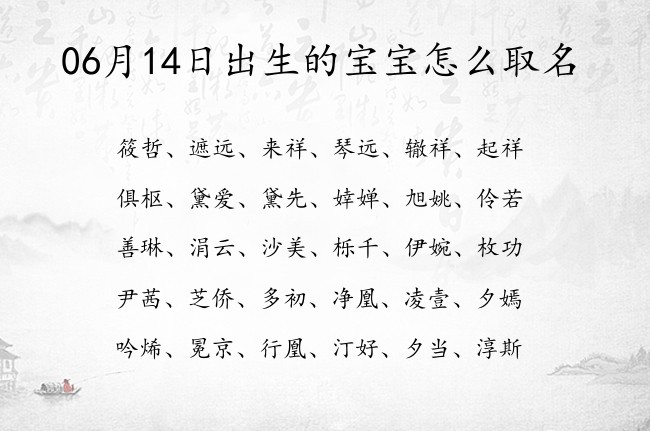 06月14日出生的宝宝怎么取名
筱哲、遮远、来祥、琴远、辙祥、起祥
俱枢、黛爱、黛先、婞婵、旭姚、伶若
善琳、涓云、沙美、栎千、伊婉、枚功
尹茜、芝侨、多初、净凰、凌壹、夕嫣
吟烯、冕京、行凰、汀好、夕当、淳斯